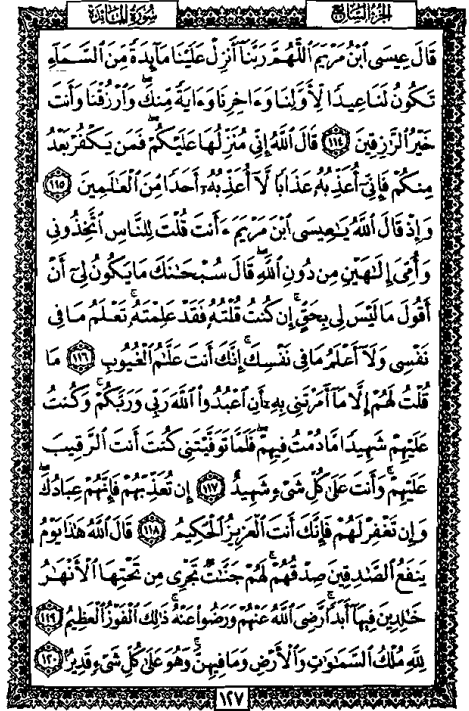 سُورَةُ المَائدَة
الجزءُ السَّابِع
قَالَ عِيسَى ٱبْنُ مَرْيَمَ ٱللَّهُمَّ رَبَّنَآ أَنزِلْ عَلَيْنَا مَآئِدَةً مِّنَ ٱلسَّمَآءِ
تَكُونُ لَنَا عِيدًا لِّأَوَّلِنَا وَءَاخِرِنَا وَءَايَةً مِّنكَ ۖ وَٱرْزُقْنَا وَأَنتَ
خَيْرُ ٱلرَّٰزِقِينَ ١١٤ قَالَ ٱللَّهُ إِنِّى مُنَزِّلُهَا عَلَيْكُمْ ۖ فَمَن يَكْفُرْ بَعْدُ
مِنكُمْ فَإِنِّىٓ أُعَذِّبُهُۥ عَذَابًا لَّآ أُعَذِّبُهُۥٓ أَحَدًا مِّنَ ٱلْعَٰلَمِينَ ١١٥
وَإِذْ قَالَ ٱللَّهُ يَٰعِيسَى ٱبْنَ مَرْيَمَ ءَأَنتَ قُلْتَ لِلنَّاسِ ٱتَّخِذُونِى
وَأُمِّىَ إِلَٰهَيْنِ مِن دُونِ ٱللَّهِ ۖ قَالَ سُبْحَٰنَكَ مَا يَكُونُ لِىٓ أَنْ
أَقُولَ مَا لَيْسَ لِى بِحَقٍّ ۚ إِن كُنتُ قُلْتُهُۥ فَقَدْ عَلِمْتَهُۥ ۚ تَعْلَمُ مَا فِى
نَفْسِى وَلَآ أَعْلَمُ مَا فِى نَفْسِكَ ۚ إِنَّكَ أَنتَ عَلَّٰمُ ٱلْغُيُوبِ ١١٦ مَا
قُلْتُ لَهُمْ إِلَّا مَآ أَمَرْتَنِى بِهِۦٓ أَنِ ٱعْبُدُوا۟ ٱللَّهَ رَبِّى وَرَبَّكُمْ ۚ وَكُنتُ
عَلَيْهِمْ شَهِيدًا مَّا دُمْتُ فِيهِمْ ۖ فَلَمَّا تَوَفَّيْتَنِى كُنتَ أَنتَ ٱلرَّقِيبَ
عَلَيْهِمْ ۚ وَأَنتَ عَلَىٰ كُلِّ شَىْءٍ شَهِيدٌ ١١٧ إِن تُعَذِّبْهُمْ فَإِنَّهُمْ عِبَادُكَ ۖ
وَإِن تَغْفِرْ لَهُمْ فَإِنَّكَ أَنتَ ٱلْعَزِيزُ ٱلْحَكِيمُ ١١٨ قَالَ ٱللَّهُ هَٰذَا يَوْمُ
يَنفَعُ ٱلصَّٰدِقِينَ صِدْقُهُمْ ۚ لَهُمْ جَنَّٰتٌ تَجْرِى مِن تَحْتِهَا ٱلْأَنْهَٰرُ
خَٰلِدِينَ فِيهَآ أَبَدًا ۚ رَّضِىَ ٱللَّهُ عَنْهُمْ وَرَضُوا۟ عَنْهُ ۚ ذَٰلِكَ ٱلْفَوْزُ ٱلْعَظِيمُ ١١٩
لِلَّهِ مُلْكُ ٱلسَّمَٰوَٰتِ وَٱلْأَرْضِ وَمَا فِيهِنَّ ۚ وَهُوَ عَلَىٰ كُلِّ شَىْءٍ قَدِيرٌۢ ١٢٠
١٢٧